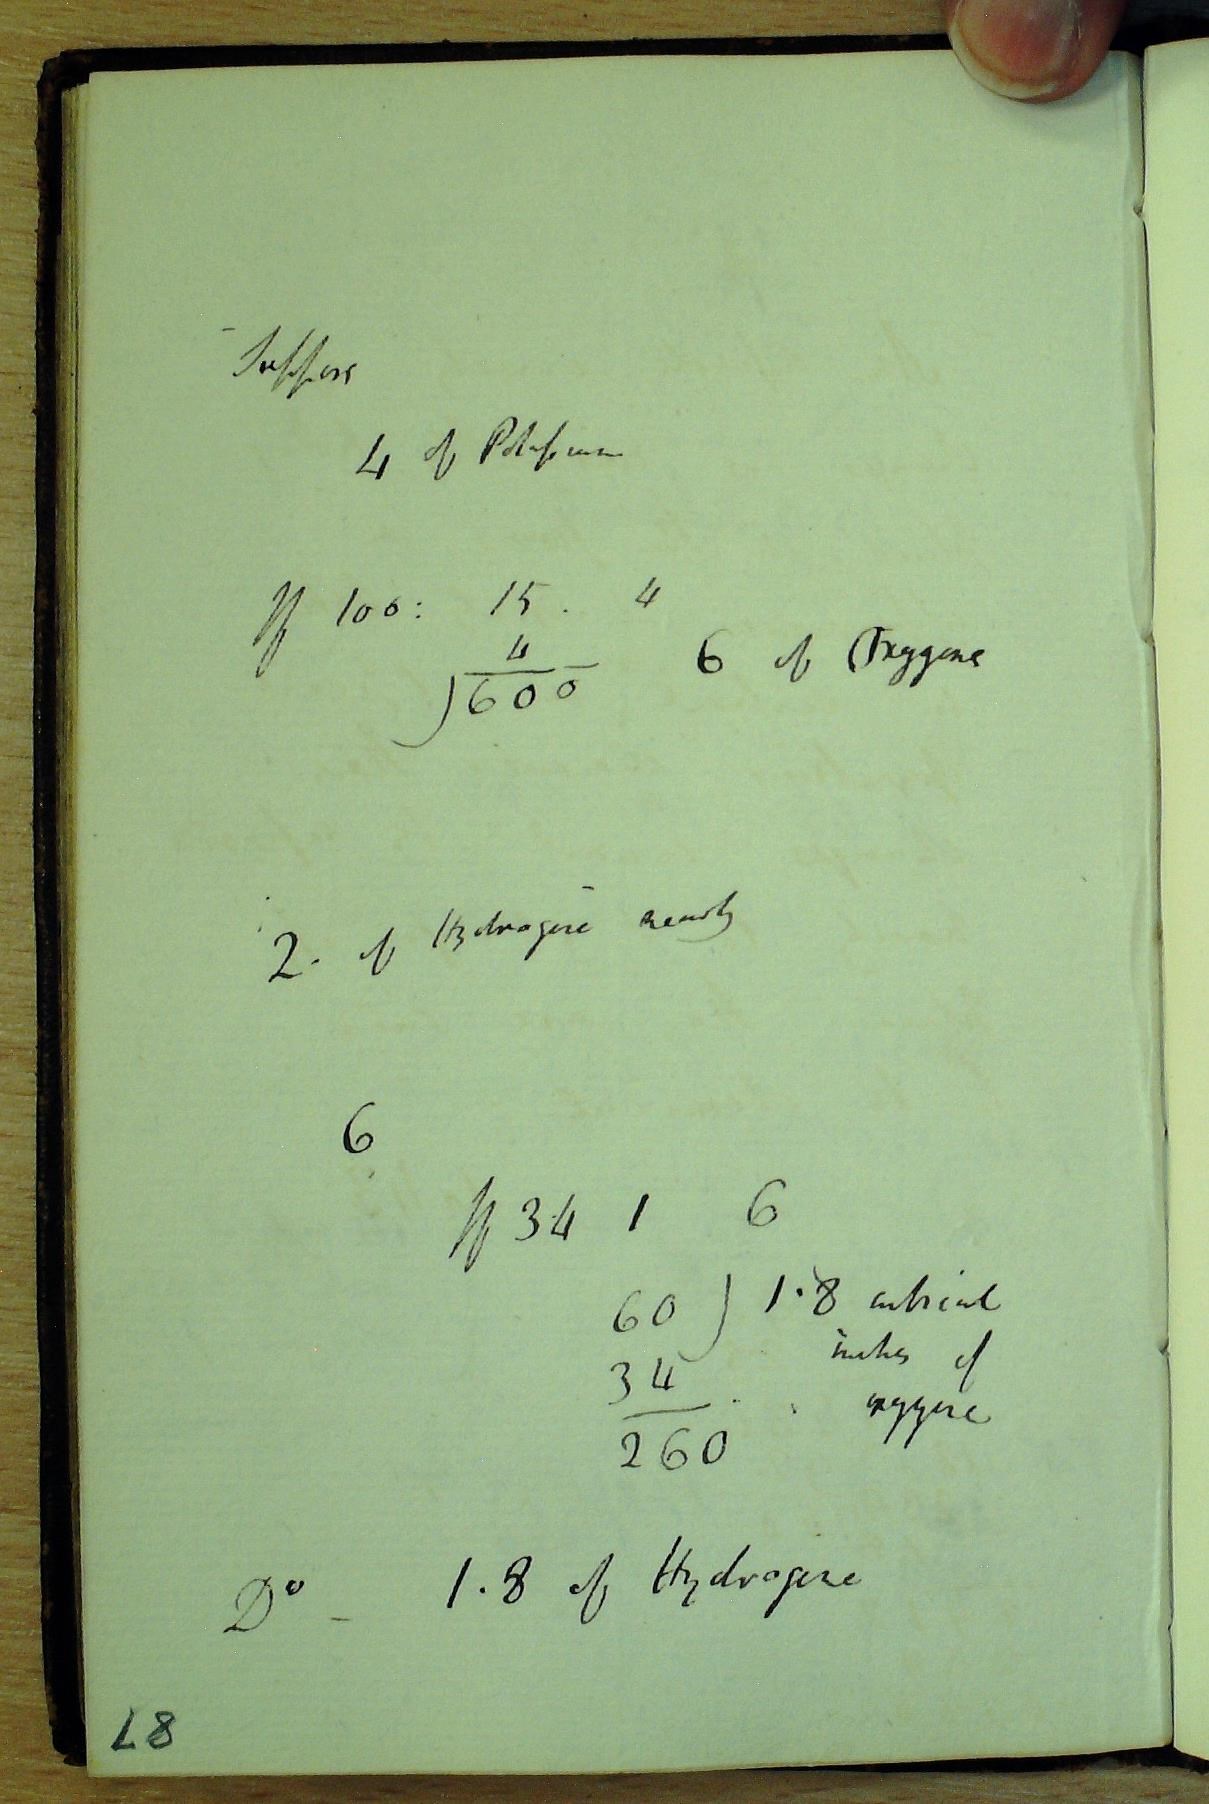 Suppose
4 of Potassium
If 100: 15. 4
4
)600
6 of Oxygene
2. of Hydrogene nearly
6
If 34 1 6
60 ) 1.8 cubical
34 inches of
260 oxygene
Do - 1.8 of Hydrogene
87